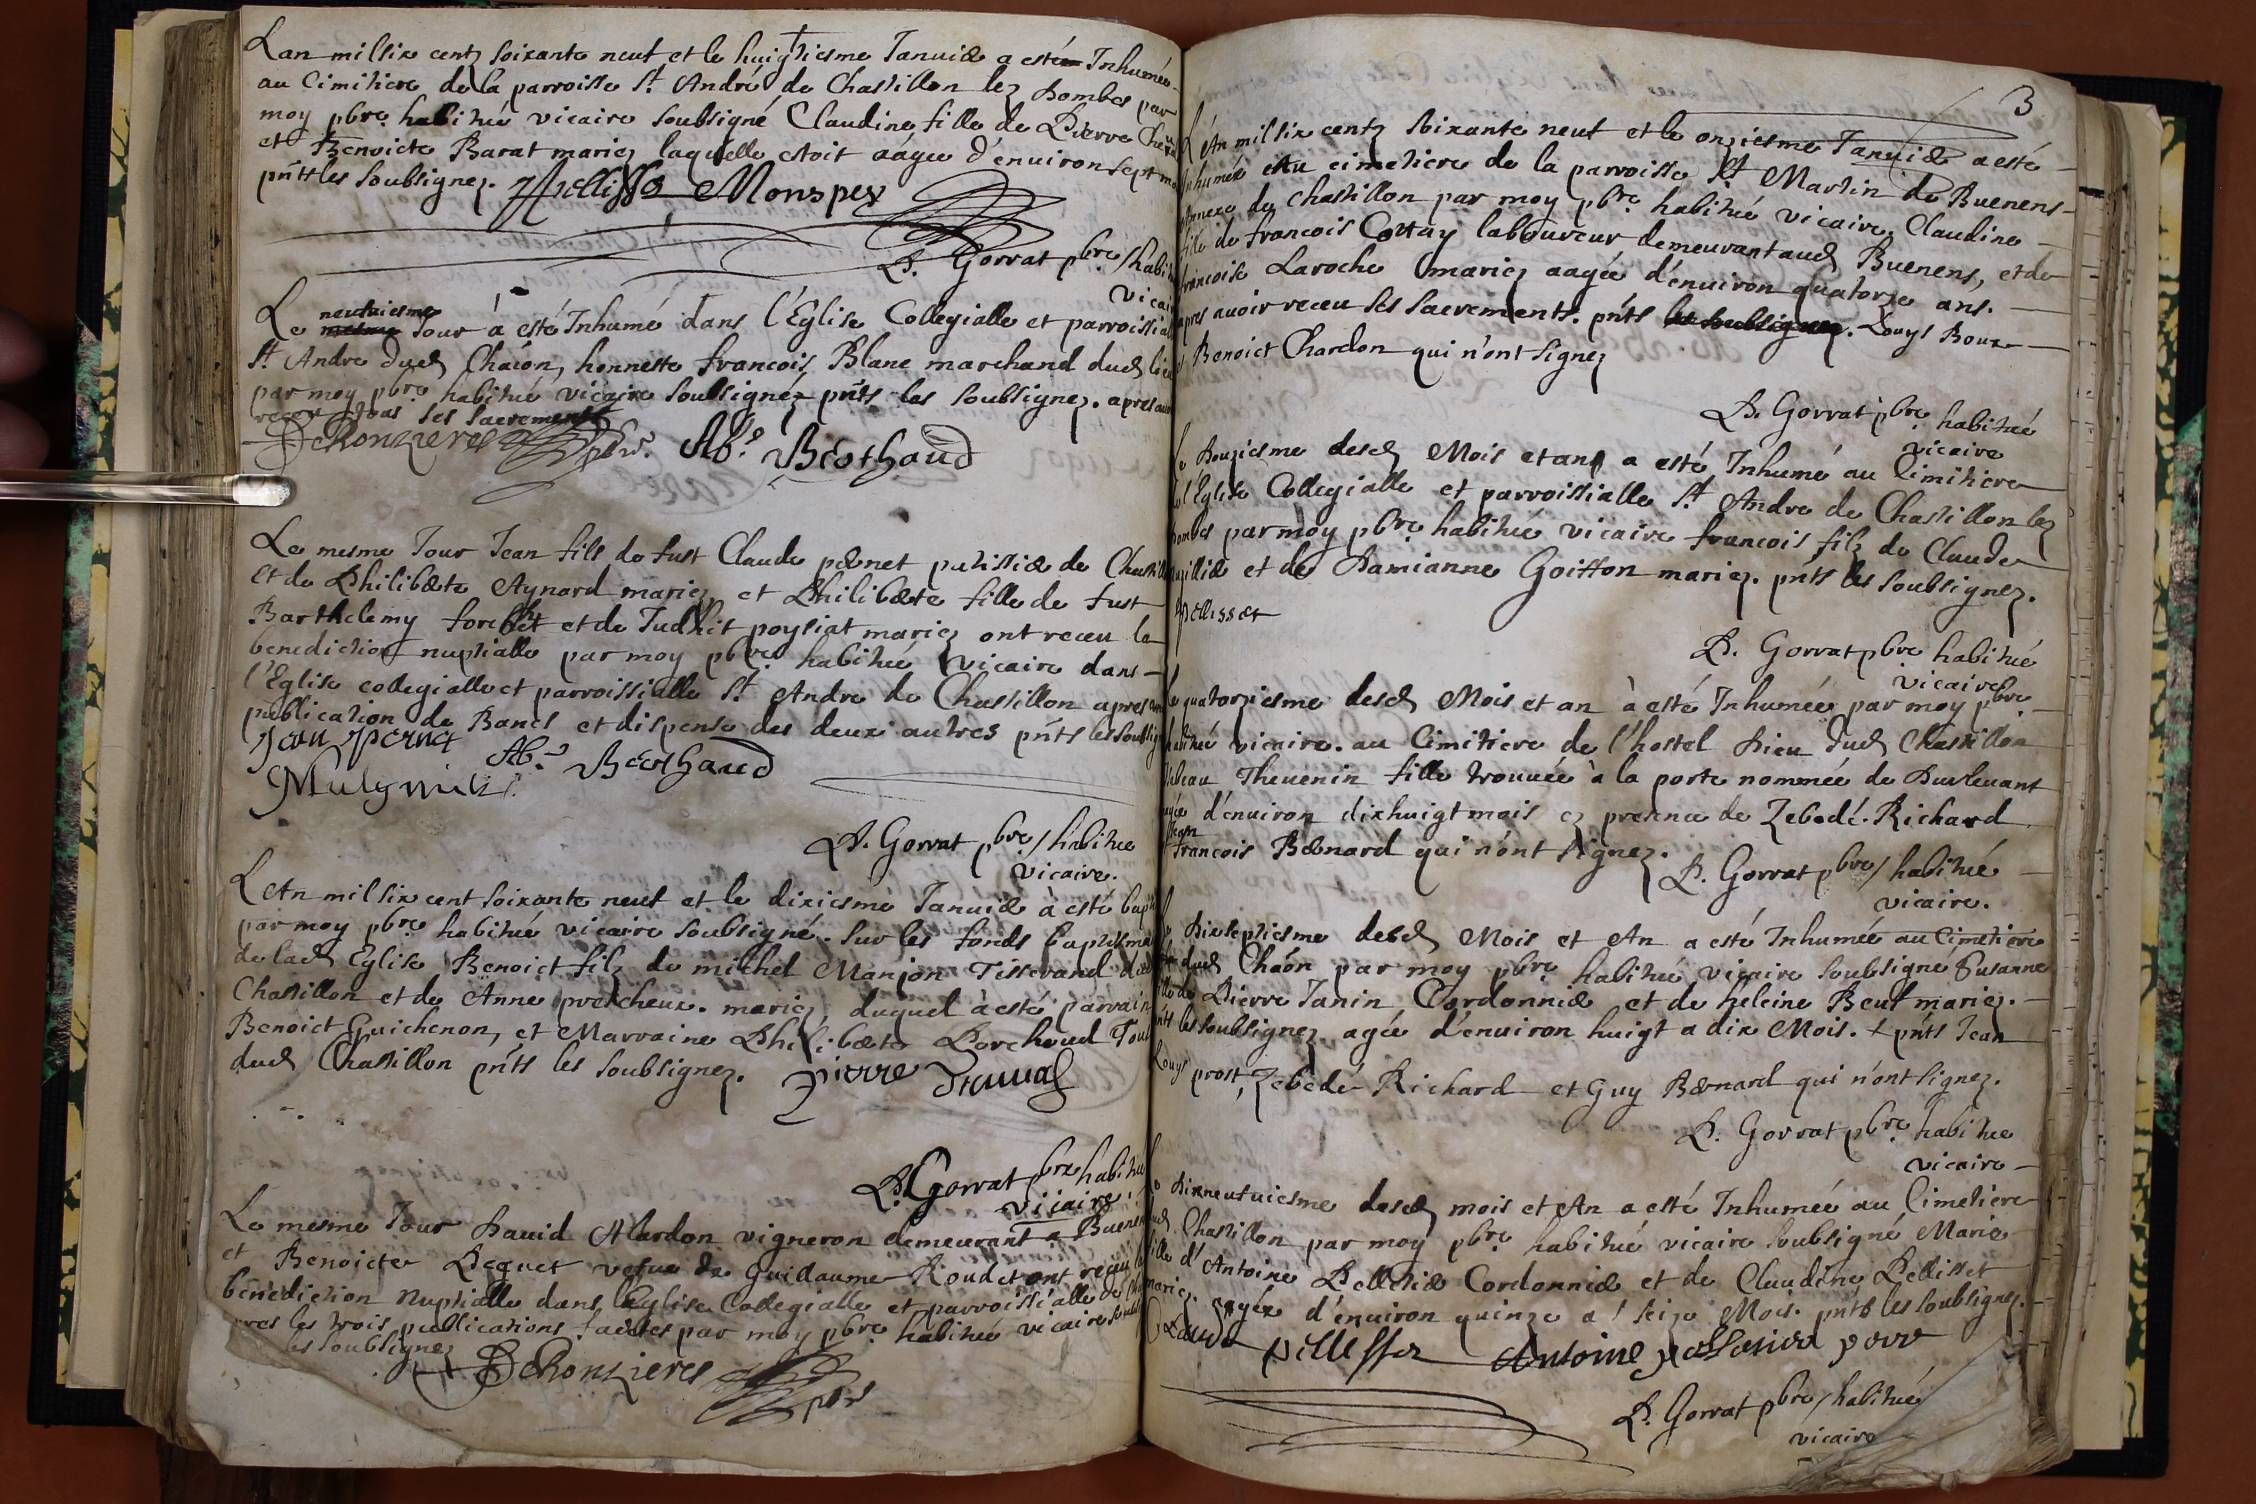 Lan mil six centz soixante neuf et le huigtiesme Januier a esté Inhumée
au Cimitiere de la parroisse St. André de Chastillon lez Dombes par
moy pbre. habitué vicaire soubsigné Claudine fille de Pierre
et Benoicte Barat mariez laquelle estoit aagée d'enuiron sept
pnts les soubsignez. Monspey
D. Gorrat pbre/habitué
vicaire
Le neufuiesme mesme Jour a esté Inhumé dans l'Eglise Collegialle et parroissialle
St. Andre dud. Chaôn, honneste francois Blanc marchand dud. lieu
par moy pbre. habitué vicaire soubsigné pnts les soubsignez. apres
receu tous ses sacrements
DeRonzieres pbre. Ab. Berthaud
Le mesme Jour Jean fils de fust Claude pernet patissier de
et de Philiberte Aynard mariez et Philiberte fille de fust
Barthelemy et de Judhit poysiat mariez ont receu la
benediction nuptialle par moy pbre. habitué vicaire dans
l'Eglise collegialle et parroissialle St. Andre de Chastillon apres
publication de Bancs et dispense des deux autres pnts les
Jean pernet Ab. Berthaud
D. Gorrat pbre/habitué
vicaire.
LAn mil six cent soixante neuf et le dixiesme Januier à esté
par moy pbre. habitué vicaire soubsigné. sur les fonds
de lad. Eglise Benoict filz de michel Manjon Tisserand
Chastillon et de Anne prescheur. mariez, duquel à esté parrain
Benoict Guichenon, et Marraine Philiberte Porchoud
dud. Chastillon pnts les soubsignez. Pierre
D. Gorrat pbre habitué
vicaire
Le mesme Jour Dauid Alardon vigneron demeurant a Buenens
et Benoicte Pequet vefue de Guillaume Roudet ont receu
benediction Nuptialle dans l'Eglise Collegialle et parroissialle
les trois publications faictes par moy pbre. habitué vicaire
les soubsignez
DeRonzieres pbre
3
L'An mil six centz soixante neuf et le onziesme Januier a esté
Inhumée Au cimetiere de la parroisse St Martin de Buenens
Annexe de Chastillon par moy pbre. habitué vicaire. Claudine
fille de francois Cottay laboureur demeurant aud. Buenens, et de
francoise Laroche mariez aagée d'enuiron quatorze ans.
apres auoir receu ses sacrements. pnts les soubsignez. Louys
et Benoict Chardon qui n'ont signez
D. Gorrat pbre. habitué
vicaire
Le Douziesme desd. Mois et an a esté Inhumé au Cimitiere
de l'Eglise Collegialle et parroissialle St. Andre de Chastillon lez
Dombes par moy pbre habitué vicaire francois filz de Claude
et de Damianne Goiffon mariez. pnts les soubsignez.
Pellisser
D. Gorrat pbre habitué
vicaire
Le quatorziesme desd. Mois et an à esté Inhumée par moy pbre.
habitué vicaire. au Cimitiere de l'hostel Dieu dud. Chastillon
Theuenin fille trouuée à la porte nommée de Durleuant
agée d'enuiron dixhuigt mois ez presence de Zebedé. Richard
Jean
francois Bernard qui n'ont signez.
D. Gorrat pbre/habitué
vicaire.
Le Dixseptiesme desd. Mois et An a esté Inhumée au Cimetiere
dud. Chaôn par moy pbre. habitué vicaire soubsigné Susanne
fille de Pierre Janin Cordonnier et de heleine Beuf mariez.
pnts les soubsignez agée d'enuiron huigt a dix Mois. + pnts Jean
Louys prost, Zebedé Richard et Guy Bernard qui n'ont signez.
D. Gorrat pbre. habitué
vicaire
Le Dixneufuiesme desd. mois et An a esté Inhumée au Cimetiere
dud. Chastillon par moy pbre. habitué vicaire soubsigné Marie
fille d'Antoine Pelletier Cordonnier et de Claudine Pellisset
mariez. aagée d'enuiron quinze a seize Mois. pnts les soubsignez.
Antoine
D. Gorrat pbre/habitué
vicaire